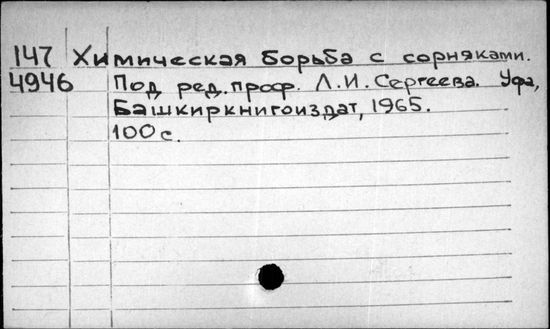 147 Химическая борьба с сорняками.
4946 Под ред. проф. Л.И. Сергеева. Уфа,
Башкиркнигоиздат, 1965.
100 с.